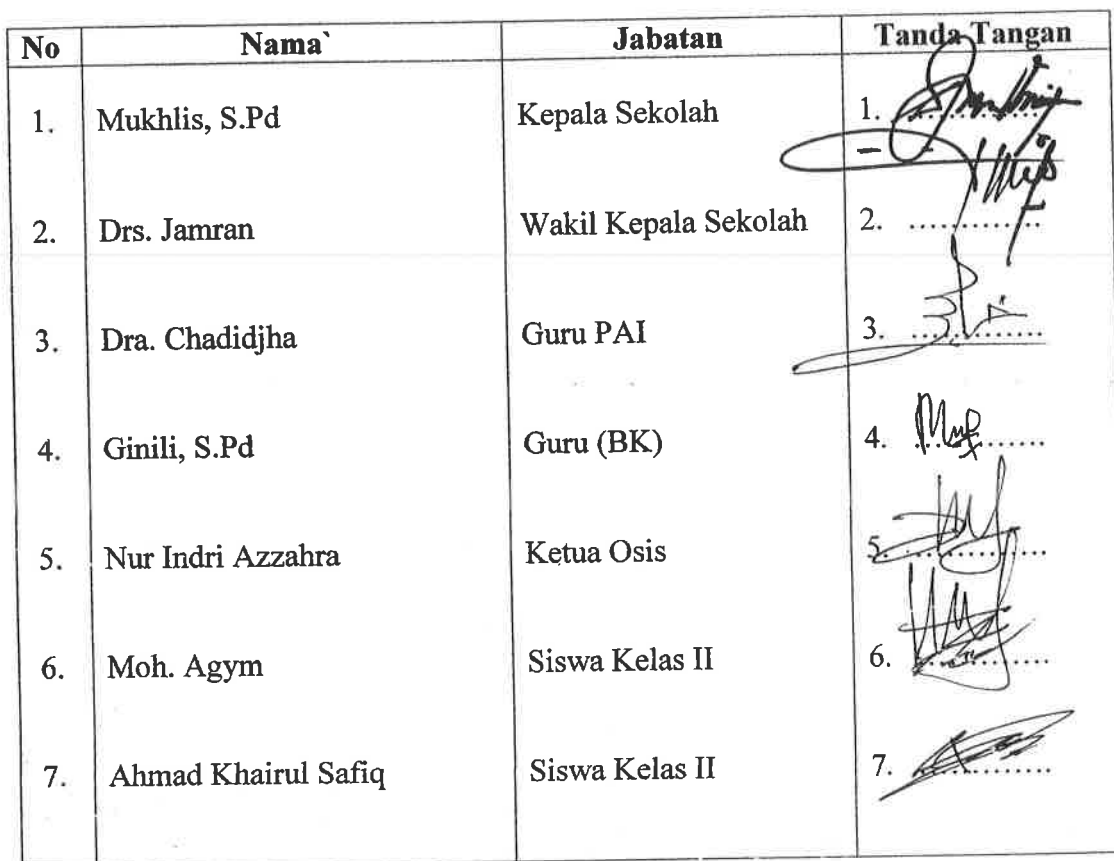 No Nama` Jabatan Tanda Tangan
1. Mukhlis, S.Pd Kepala Sekolah 1. ............
2. Drs. Jamran Wakil Kepala Sekolah 2. ............
3. Dra. Chadidjha Guru PAI 3. ............
4. Ginili, S.Pd Guru (BK) 4. ............
5. Nur Indri Azzahra Ketua Osis 5. ............
6. Moh. Agym Siswa Kelas II 6. ............
7. Ahmad Khairul Safiq Siswa Kelas II 7. ............